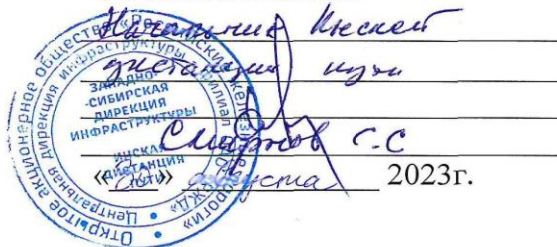 Начальник Инской
дистанции пути
Смирнов С.С
« » августа 2023г.
Открытое акционерное общество «Российские железные дороги»
Центральная дирекция инфраструктуры филиал ОАО «РЖД»
ЗАПАДНО-
-СИБИРСКАЯ
ДИРЕКЦИЯ
ИНФРАСТРУКТУРЫ
ИНСКАЯ
ДИСТАНЦИЯ
ПУТИ